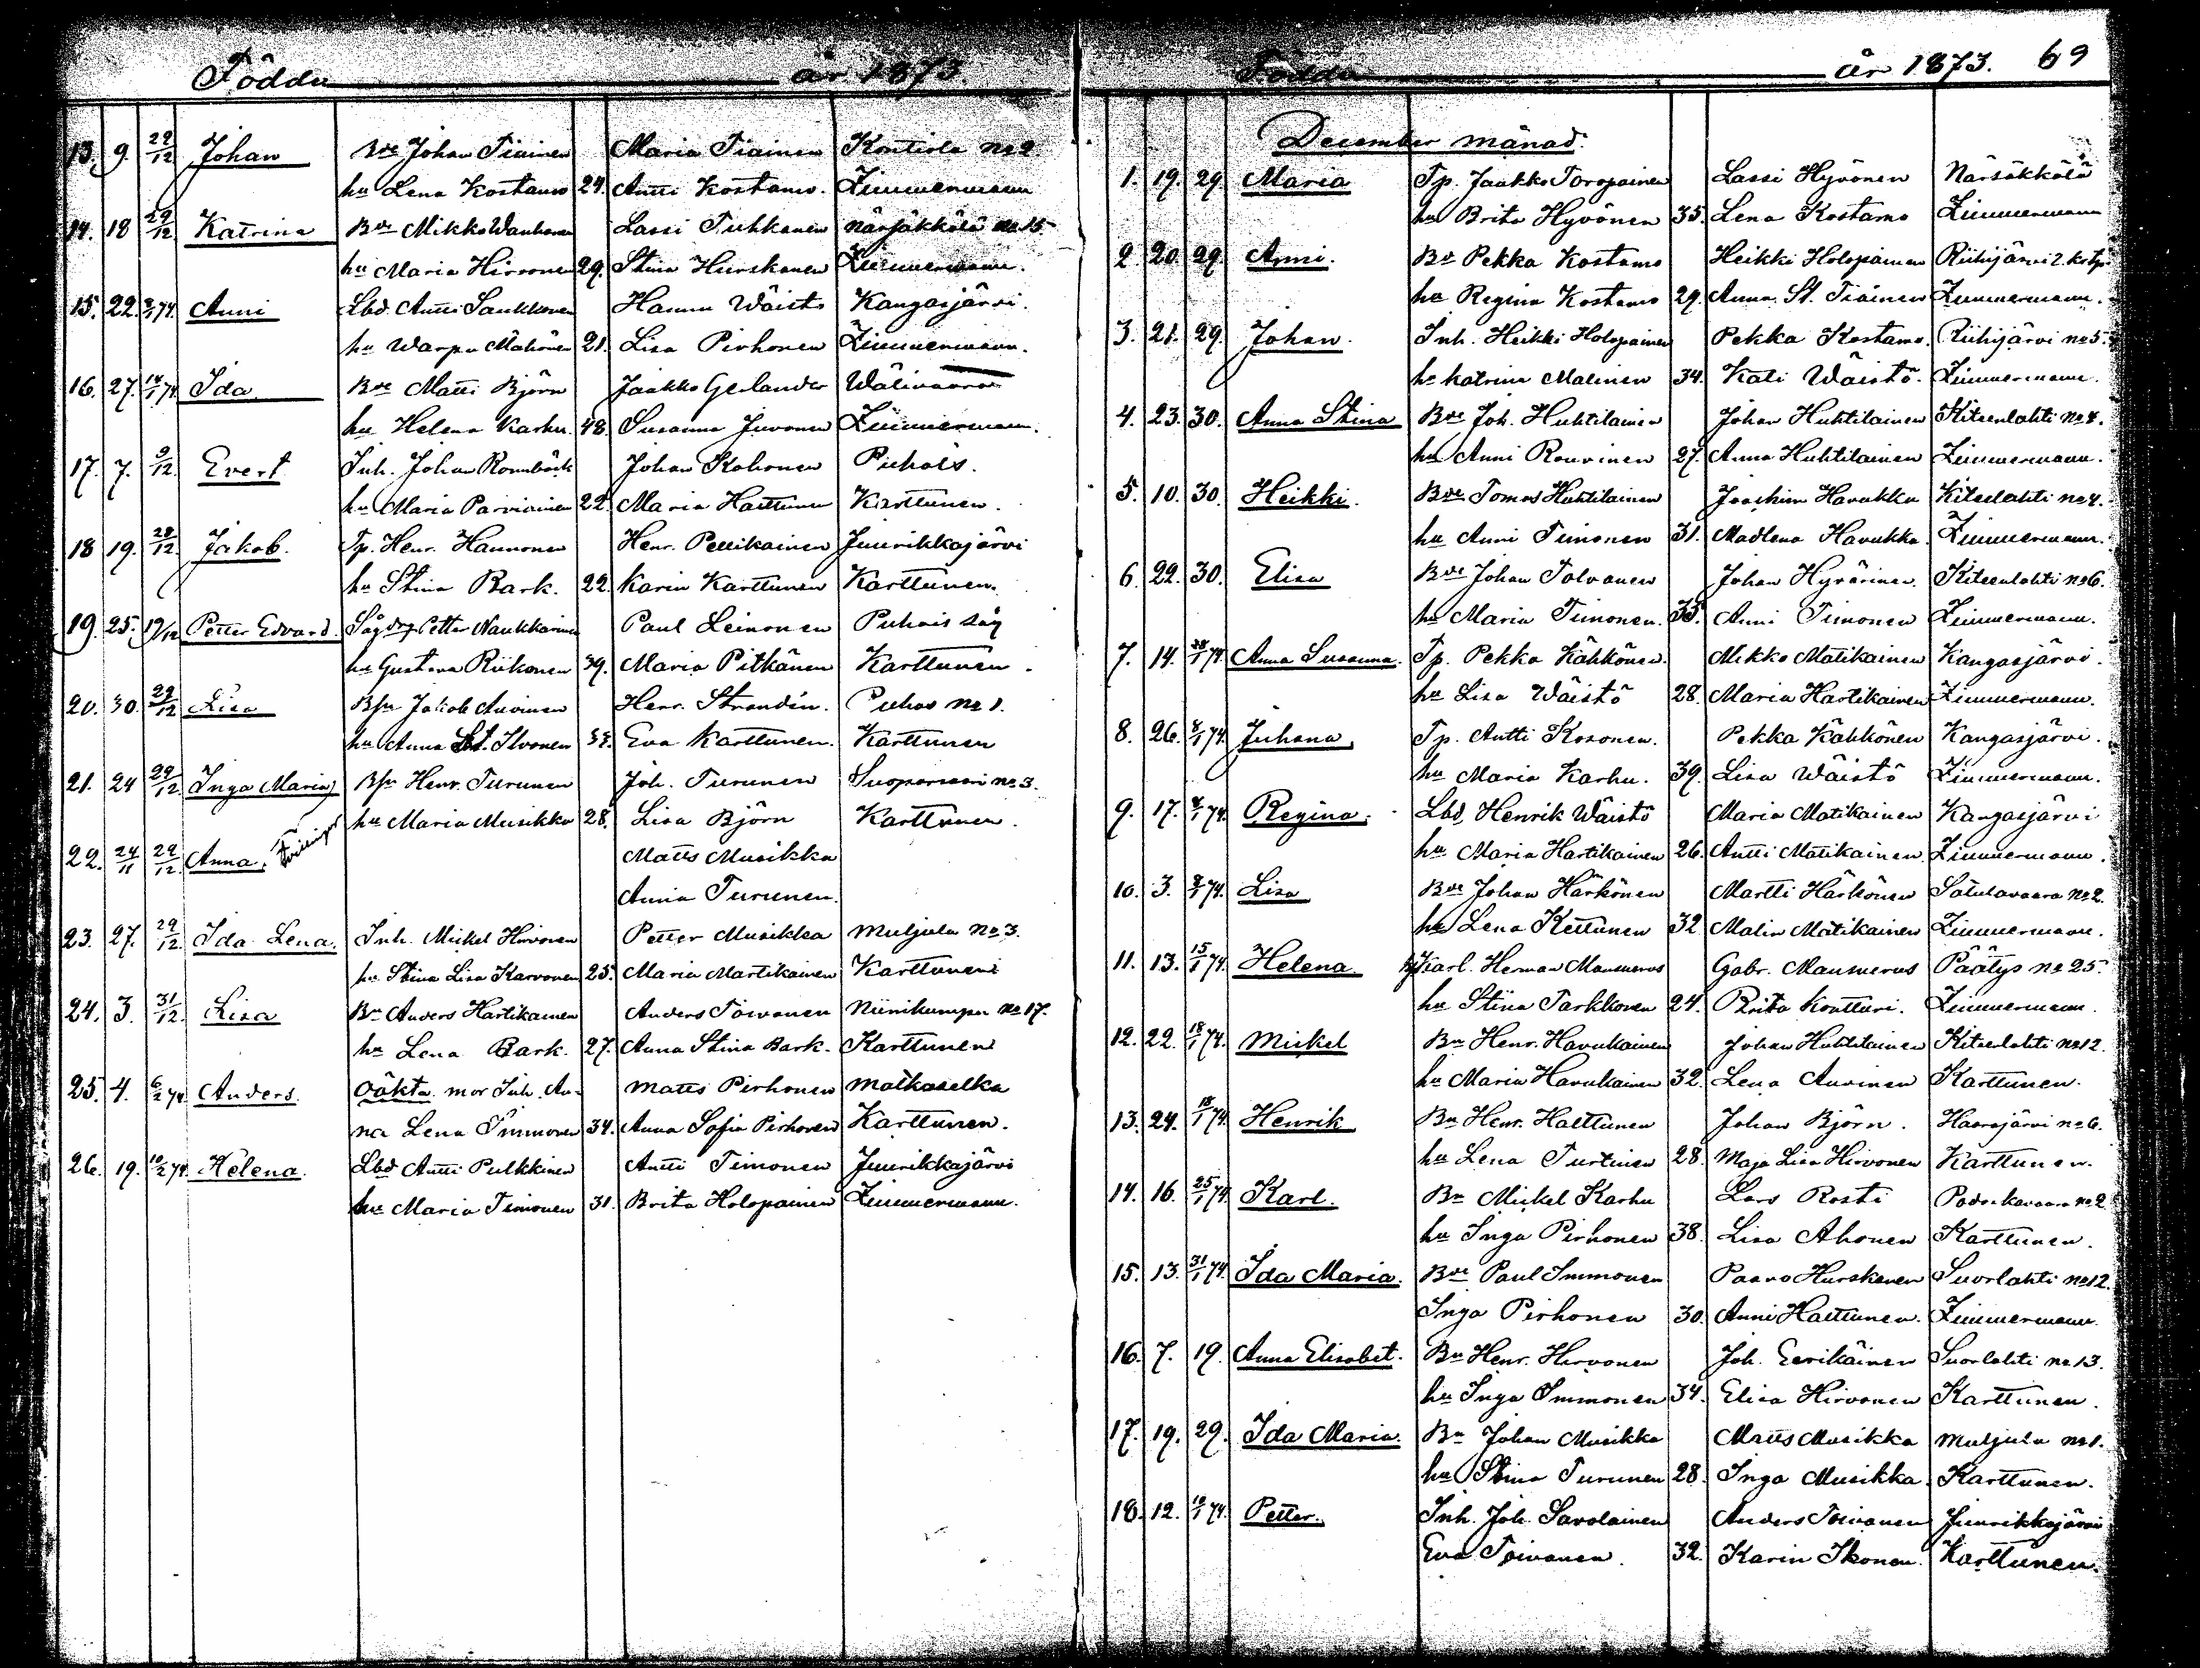 Födda år 1873.
13. 9. 22/12 Johan Bde Johan Tiainen Maria Tiainen Kontiola no 2.
hu Lena Kostamo 24. Antti Kostamo. Zimmermann
14. 18 29/12 Katrina Bde Mikko Wanhanen Lassi Tuhkanen Närsäkkälä no 15
hu Maria Hirvonen 29. Stina Hurskanen Zimmermann.
15. 22. 74. Anni Lbd. Antti Saukkonen Hannu Wäistö Kangasjärvi.
hu Warpu Mähönen 21. Lisa Pirhonen Zimmermann.
16. 27. 14/1 74 Ida Bde Matti Björn Jaakko Gerlander Wälivaara
hu Helena Karhu. 48. Susanna Juvonen Zimmermann.
17. 7. 9/12 Evert Inh. Johan Rönnbäck Johan Kohonen Puhois.
hu Maria Parviainen 22. Maria Hattunen Karttunen.
18 19. 28/12. Jakob. Tp. Henr. Hannonen Henr. Pellikainen Juurikkajärvi
hu Stina Bark. 22. Karin Karttunen Karttunen.
19. 25. 19/12 Petter Edvard. Sågdrg Petter Naukkarinen Paul Leinonen Puhois såg
hu Gustava Riikonen 39. Maria Pitkänen Karttunen.
20. 30. 29/12 Lisa Bsn Jakob Auvinen Henr. Strandén. Puhos no 1.
hu Anna St. Ilvonen 33. Eva Karttunen. Karttunen
21. 24 29/12 Inga Maria Bsn Henr. Turunen Joh. Turunen Suoparsaari no 3.
hu Maria Musikka 28. Lisa Björn Karttunen.
22. 24/11 29/12. Anna. Tvillingar Matts Musikka
Anna Turunen.
23. 27. 29/12. Ida Lena. Inh. Mickel Hirvonen Petter Musikka Muljula No 3.
hu Stina Lisa Karvonen 25. Maria Martikainen Karttunen
24. 3. 31/12. Lisa Bn Anders Hartikainen Anders Toivonen Niinikumpu no 17.
hu Lena Bark. 27. Anna Stina Bark. Karttunen
25. 4. 6/2 74 Anders. Oäkta. mor Inh. An- Matts Pirhonen Matkaselkä
na Lena Immonen 34. Anna Sofia Pirhonen Karttunen.
26. 19. 10/2 74. Helena. Lbd Antti Pulkkinen Antti Timonen Juurikkajärvi
hu Maria Timonen 31. Brita Holopainen Zimmermann.
Födda år 1873. 69
December månad.
1. 19. 29. Maria Tp. Jaakko Toropainen Lassi Hyvönen Närsäkkälä
hu Brita Hyvönen 35. Lena Kostamo Zimmermann
2. 20. 29. Anni. Bde Pekka Kostamo Heikki Holopainen Riihijärvi 2. kotp.
hu Regina Kostamo 29. Anna St. Tiainen Zimmermann.
3. 21. 29. Johan. Inh. Heikki Holopainen Pekka Kostamo. Riihijärvi no 5.
hu Katrina Malinen 34. Kati Wäistö. Zimmermann.
4. 23. 30. Anna Stina Bde Joh. Huhtilainen Johan Huhtilainen Kiteenlahti no 4.
hu Anni Rouvinen 27. Anna Huhtilainen Zimmermann.
5. 10. 30. Heikki. Bde Tomas Huhtilainen Joachim Havukka Kiteelahti no 4.
hu Anni Timonen 31. Madlena Havukka. Zimmermann.
6. 22. 30. Elisa Bde Johan Tolvanen Johan Hyvärinen. Kiteenlahti no 6.
hu Maria Timonen. 35. Anni Timonen Zimmermann.
7. 14. 74 Anna Susanna. Tp. Pekka Kähkönen. Mikko Matikainen Kangasjärvi.
hu Lisa Wäistö 28. Maria Hartikainen Zimmermann.
8. 26. 74. Juhana. Tp. Antti Kosonen. Pekka Kähkönen Kangasjärvi.
hu Maria Karhu. 39. Lisa Wäistö Zimmermann.
9. 17. 74. Regina. Lbd. Henrik Wäistö Maria Matikainen Kangasjärvi
hu Maria Hartikainen 26. Antti Matikainen Zimmermann.
10. 3. 74. Lisa Bde Johan Härkönen Martti Härkönen Satulavaara no 2.
hu Lena Kettunen 32. Malin Matikainen Zimmermann.
11. 13. 15/1 74. Helena Karl. Herman Mansnerus Gabr. Mansnerus Päätys no 25.
hu Stina Tarkkonen 24. Brita Kontturi. Zimmermann.
12. 22. 18/1 74. Mickel Bn Henr. Havukainen Johan Huhtilainen Kiteenlahti no 12.
hu Maria Havukainen 32. Lena Auvinen Karttunen.
13. 24. 18/1 74. Henrik Bn Henr. Hattunen Johan Björn. Haarajärvi no 6.
hu Lena Turtinen 28. Maja Lisa Hirvonen Karttunen.
14. 16. 25/1 74. Karl. Bn Mickel Karhu Lars Rosti no 2.
hu Inga Pirhonen 38. Lisa Ahonen Karttunen.
15. 13. 31/1 74. Ida Maria. Bde Paul Immonen Paavo Hurskanen Suorlahti no 12.
Inga Pirhonen 30. Anni Hattunen. Zimmermann.
16. 7. 19. Anna Elisabet. Bn Henr. Hirvonen Joh. Eerikäinen Suorlahti no 13.
hu Inga Immonen 34. Elisa Hirvonen Karttunen.
17. 19. 29. Ida Maria. Bn Johan Musikka Matts Musikka Muljula no 1.
hu Stina Turunen 28. Inga Musikka. Karttunen.
18. 12. 74. Petter. Inh. Joh. Savolainen Anders Toivanen Juurikkajärvi
Eva Toivanen. 32. Karin Ikonen. Karttunen.